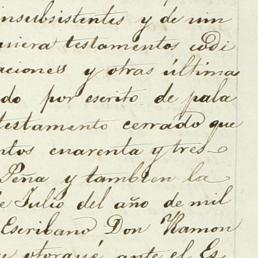 insubsistentes y de nin
quiera testamentos codi
aciones y otras últimas
do por escrito de pala
testamento cerrado que
ntos cuarenta y tres
Peña y tambien la
de Julio del año de mil
Escribano Don Ramon
otorgué ante el Es